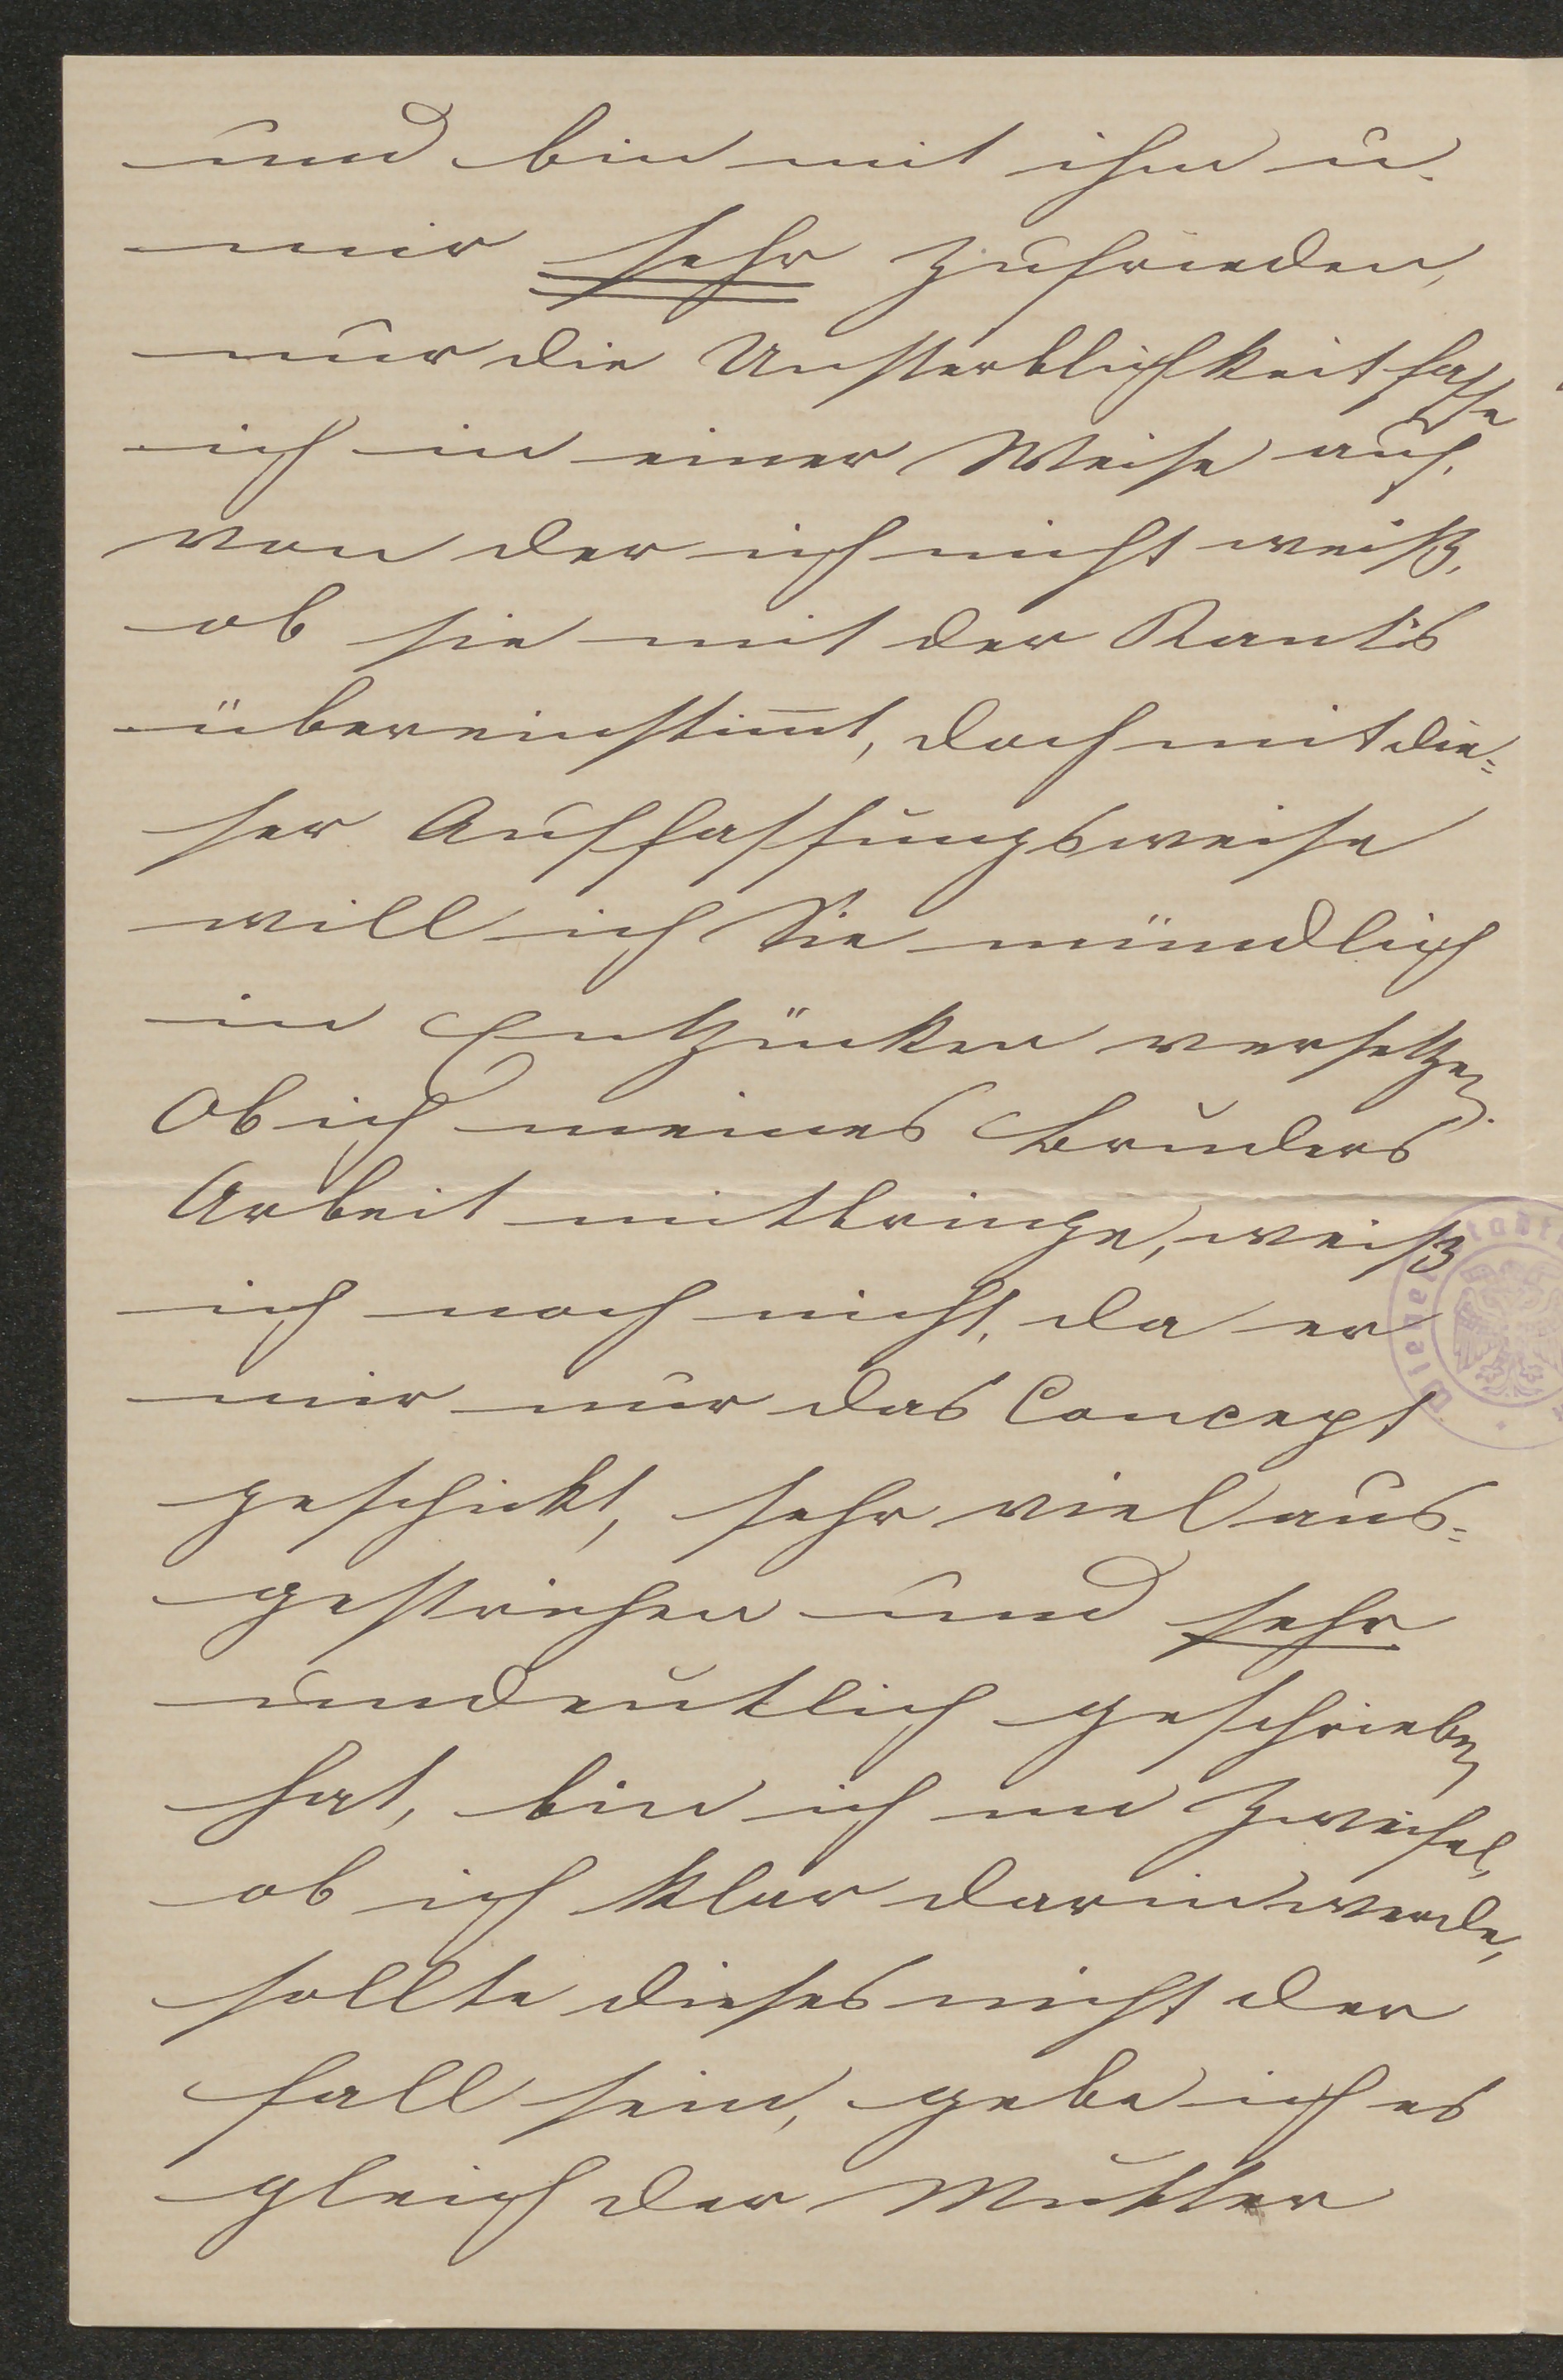 und bin mit ihm u.
mir sehr zufrieden,
nur die Unsterblichkeit fasse
ich in einer Weise auf,
von der ich nicht weiß,
ob sie mit der Kants
übereinstim̅t, doch mit die=
ser Auffassungsweise
will ich Sie mündlich
in Entzücken versetzen.
Ob ich meines Bruders
Arbeit mitbringe, weiß
ich noch nicht, da er
mir nur das Concept
geschickt, sehr viel aus=
gestrichen und sehr
undeutlich geschrieben
hat, bin ich im Zweifel,
ob ich klar darin werde,
sollte dieses nicht der
Fall sein, gebe ich es
gleich der Mutter